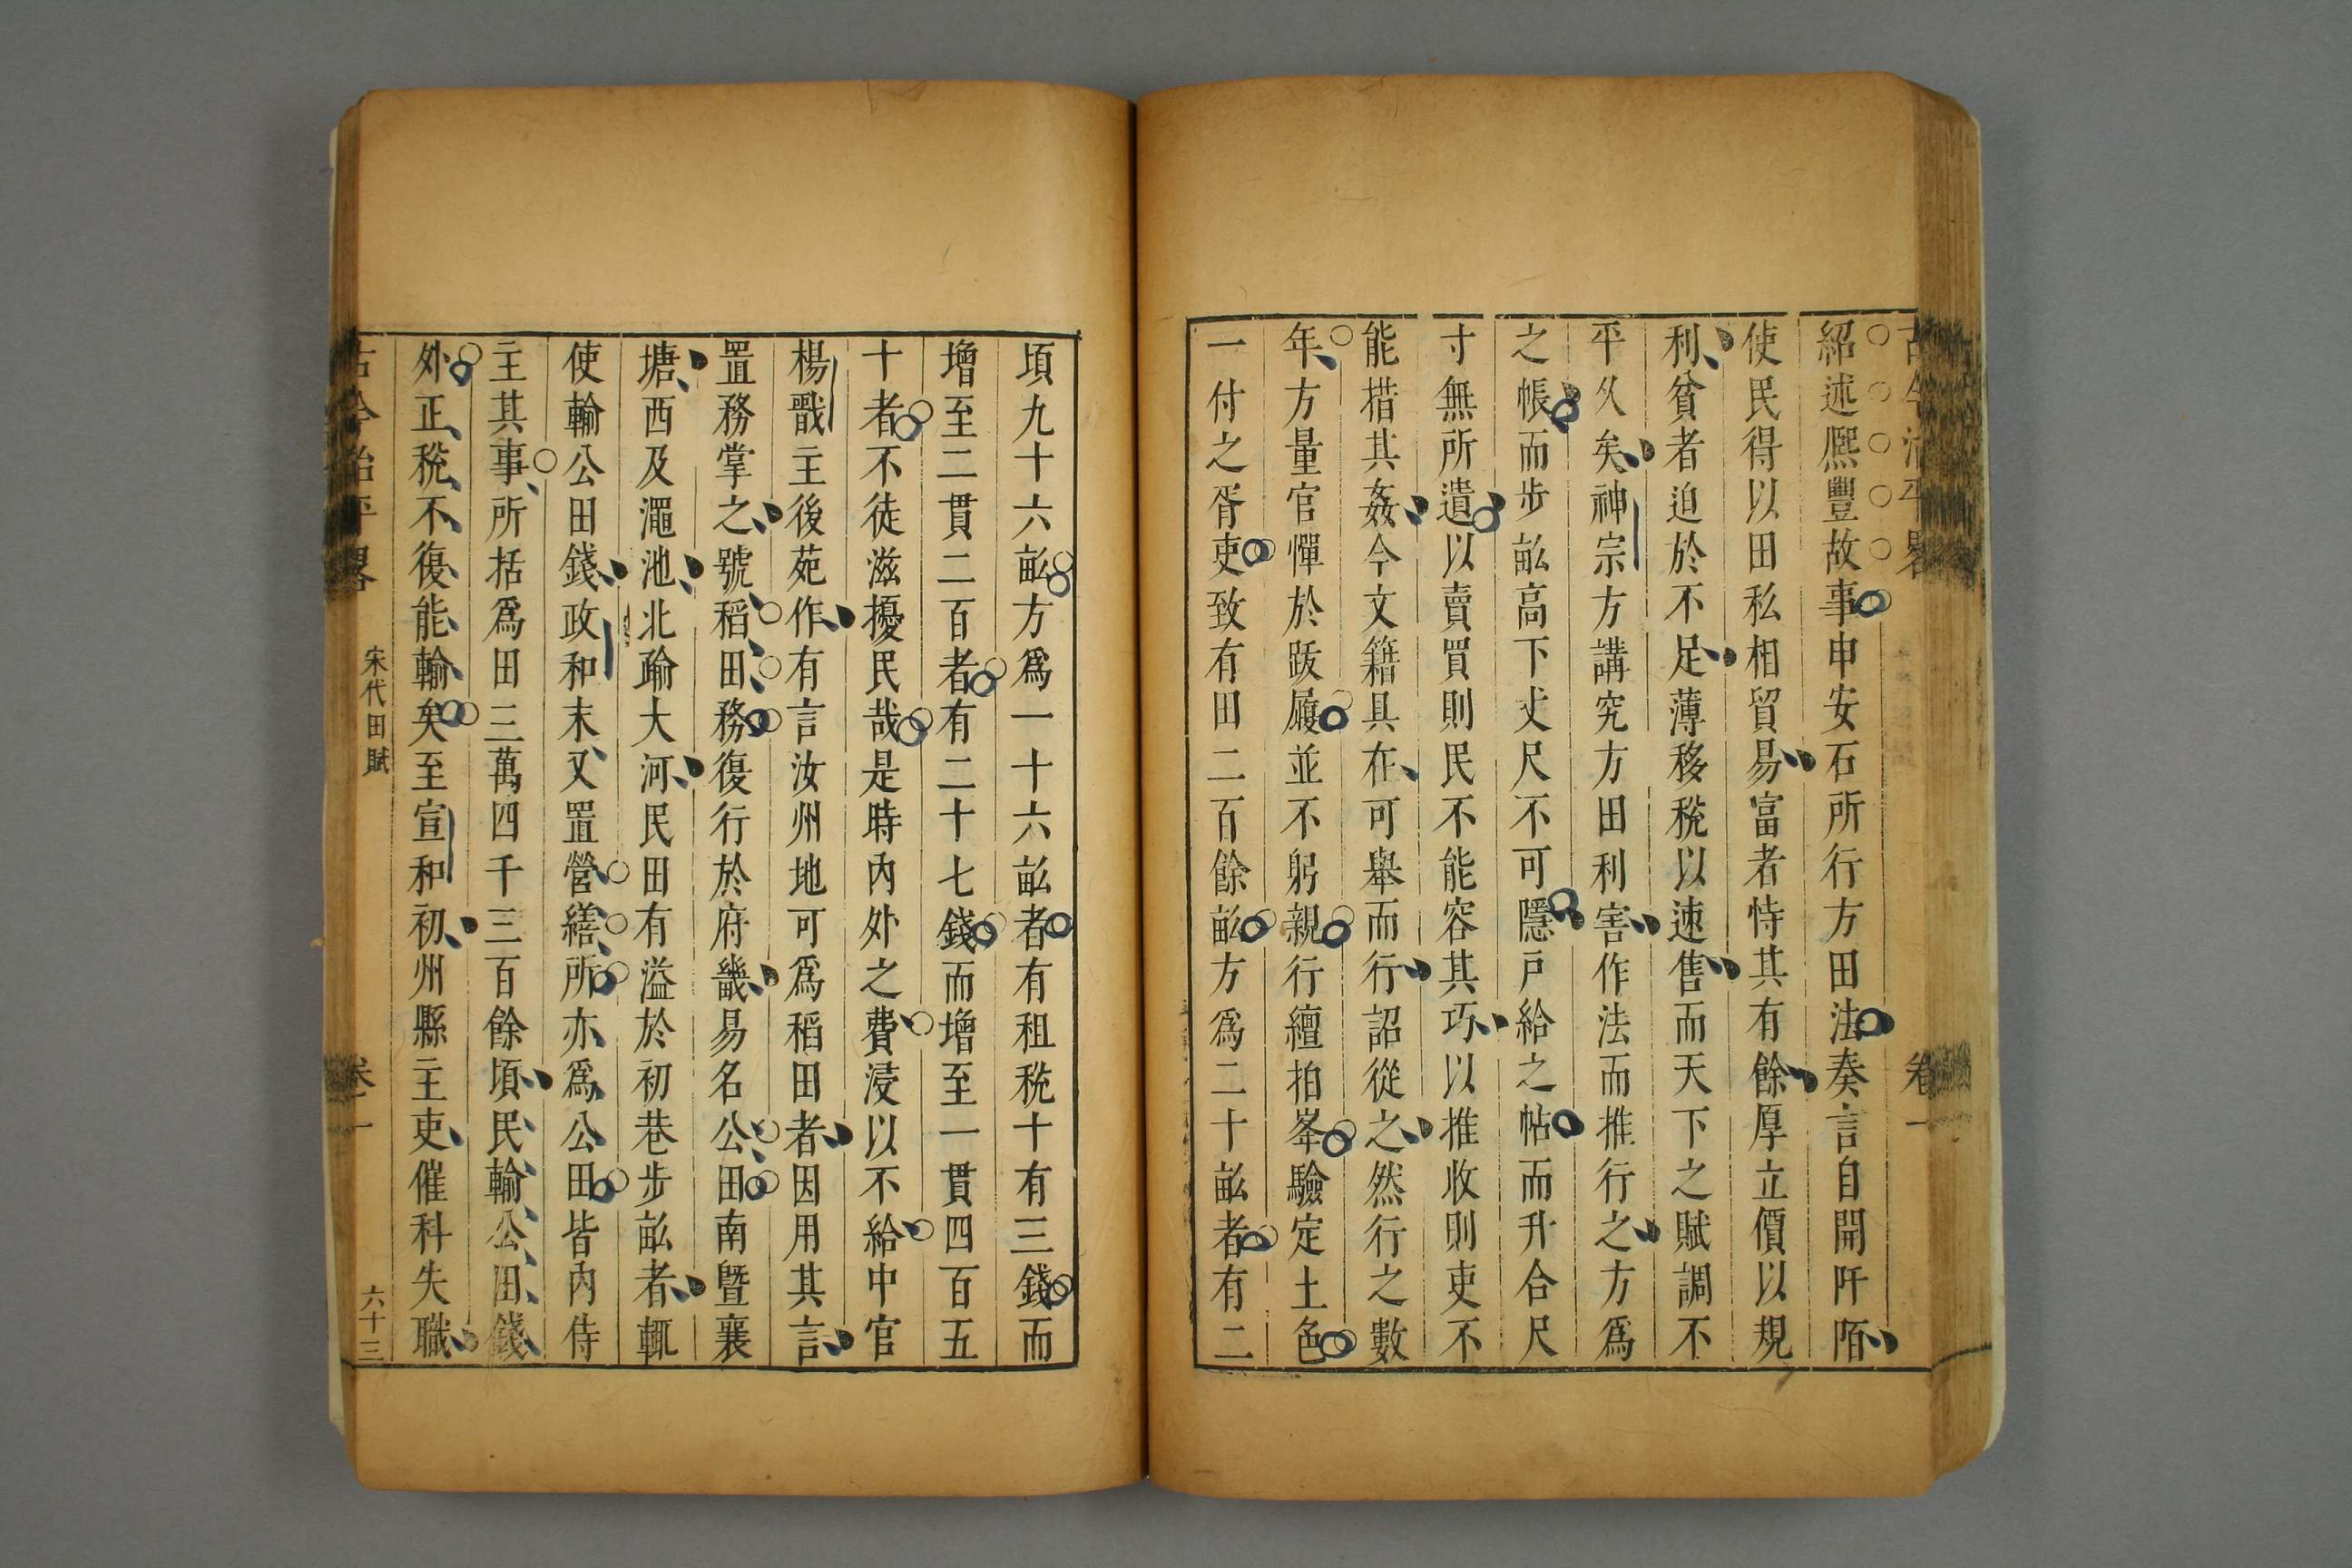 古今治平畧 卷一
紹述熈豐故事申安石所行方田法奏言自開阡陌
使民得以田私相貿易富者恃其有餘厚立價以規
利貧者迫於不足薄移稅以速售而天下之賦調不
平久矣神宗方講究方田利害作法而推行之方爲
之帳而步畝高下丈尺不可隱戸給之帖而升合尺
寸無所遺以賣買則民不能容其巧以推收則吏不
能措其姦今文籍具在可舉而行詔從之然行之數
年方量官憚於跋履並不躬親行繵拍峯驗定土色
一付之胥吏致有田二百餘畝方爲二十畝者有二
頃九十六畝方爲一十六畝者有租稅十有三錢而
增至二貫二百者有二十七錢而增至一貫四百五
十者不徒滋擾民哉是時內外之費浸以不給中官
楊戩主後苑作有言汝州地可爲稻田者因用其言
置務掌之號稻田務復行於府畿易名公田南曁襄
塘西及澠池北踰大河民田有溢於初巷步畝者輒
使輸公田錢政和末又置營繕所亦爲公田皆內侍
主其事所括爲田三萬四千三百餘頃民輸公田錢
外正稅不復能輸矣至宣和初州縣主吏催科失職
古今治平畧 宋代田賦 卷一 六十三